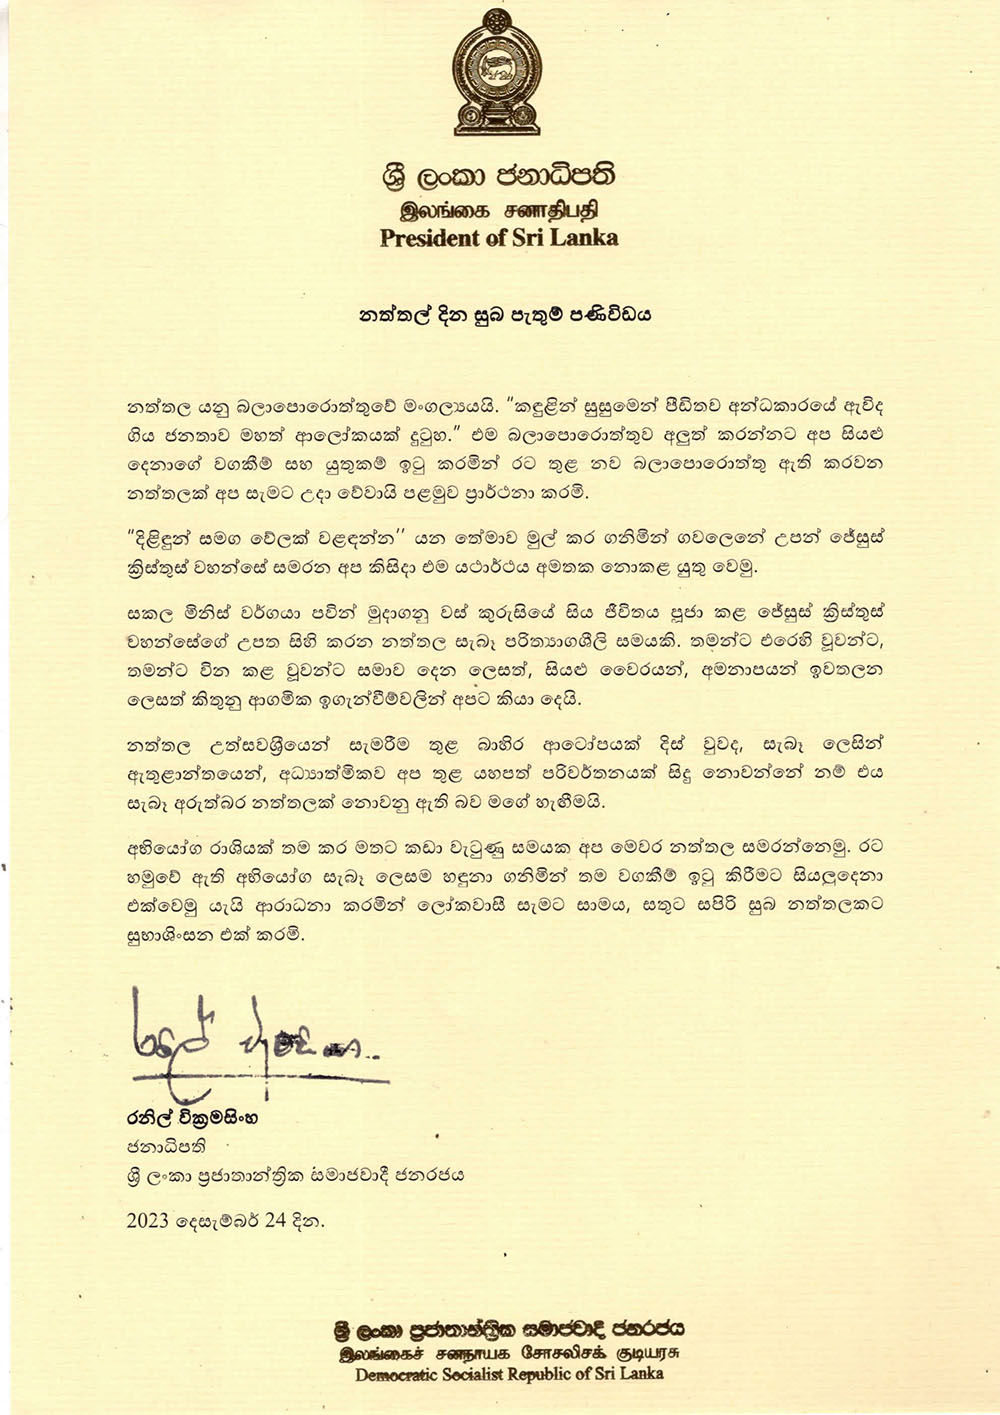 ශ්‍රී ලංකා ජනාධිපති
இலங்கை சனாதிபதி
President of Sri Lanka
නත්තල් දින සුබ පැතුම් පණිවිඩය
නත්තල යනු බලාපොරොත්තුවේ මංගල්‍යයයි. “කඳුළින් සුසුමෙන් පීඩිතව අන්ධකාරයේ ඇවිද
ගිය ජනතාව මහත් ආලෝකයක් දුටුහ.” එම බලාපොරොත්තුව අලුත් කරන්නට අප සියළු
දෙනාගේ වගකීම් සහ යුතුකම් ඉටු කරමින් රට තුළ නව බලාපොරොත්තු ඇති කරවන
නත්තලක් අප සැමට උදා වේවායි පළමුව ප්‍රාර්ථනා කරමි.
“දිළිඳුන් සමග වේලක් වළඳන්න’’ යන තේමාව මුල් කර ගනිමින් ගවලෙනේ උපන් ජේසුස්
ක්‍රිස්තුස් වහන්සේ සමරන අප කිසිදා එම යථාර්ථය අමතක නොකළ යුතු වෙමු.
සකල මිනිස් වර්ගයා පවින් මුදාගනු වස් කුරුසියේ සිය ජීවිතය පූජා කළ ජේසුස් ක්‍රිස්තුස්
වහන්සේගේ උපත සිහි කරන නත්තල සැබෑ පරිත්‍යාගශීලි සමයකි. තමන්ට එරෙහි වූවන්ට,
තමන්ට වින කළ වූවන්ට සමාව දෙන ලෙසත්, සියළු වෛරයන්, අමනාපයන් ඉවතලන
ලෙසත් කිතුනු ආගමික ඉගැන්වීම්වලින් අපට කියා දෙයි.
නත්තල උත්සවශ්‍රීයෙන් සැමරීම තුළ බාහිර ආටෝපයක් දිස් වුවද, සැබෑ ලෙසින්
ඇතුළාන්තයෙන්, අධ්‍යාත්මිකව අප තුළ යහපත් පරිවර්තනයක් සිදු නොවන්නේ නම් එය
සැබෑ අරුත්බර නත්තලක් නොවනු ඇති බව මගේ හැඟීමයි.
අභියෝග රාශියක් තම කර මතට කඩා වැටුණු සමයක අප මෙවර නත්තල සමරන්නෙමු. රට
හමුවේ ඇති අභියෝග සැබෑ ලෙසම හඳුනා ගනිමින් තම වගකීම් ඉටු කිරීමට සියලුදෙනා
එක්වෙමු යැයි ආරාධනා කරමින් ලෝකවාසී සැමට සාමය, සතුට සපිරි සුබ නත්තලකට
සුභාශිංසන එක් කරමි.
රනිල් වික්‍රමසිංහ
ජනාධිපති
ශ්‍රී ලංකා ප්‍රජාතාන්ත්‍රික සමාජවාදී ජනරජය
2023 දෙසැම්බර් 24 දින.
ශ්‍රී ලංකා ප්‍රජාතාන්ත්‍රික සමාජවාදී ජනරජය
இலங்கைச் சனநாயக சோசலிசக் குடியரசு
Democratic Socialist Republic of Sri Lanka